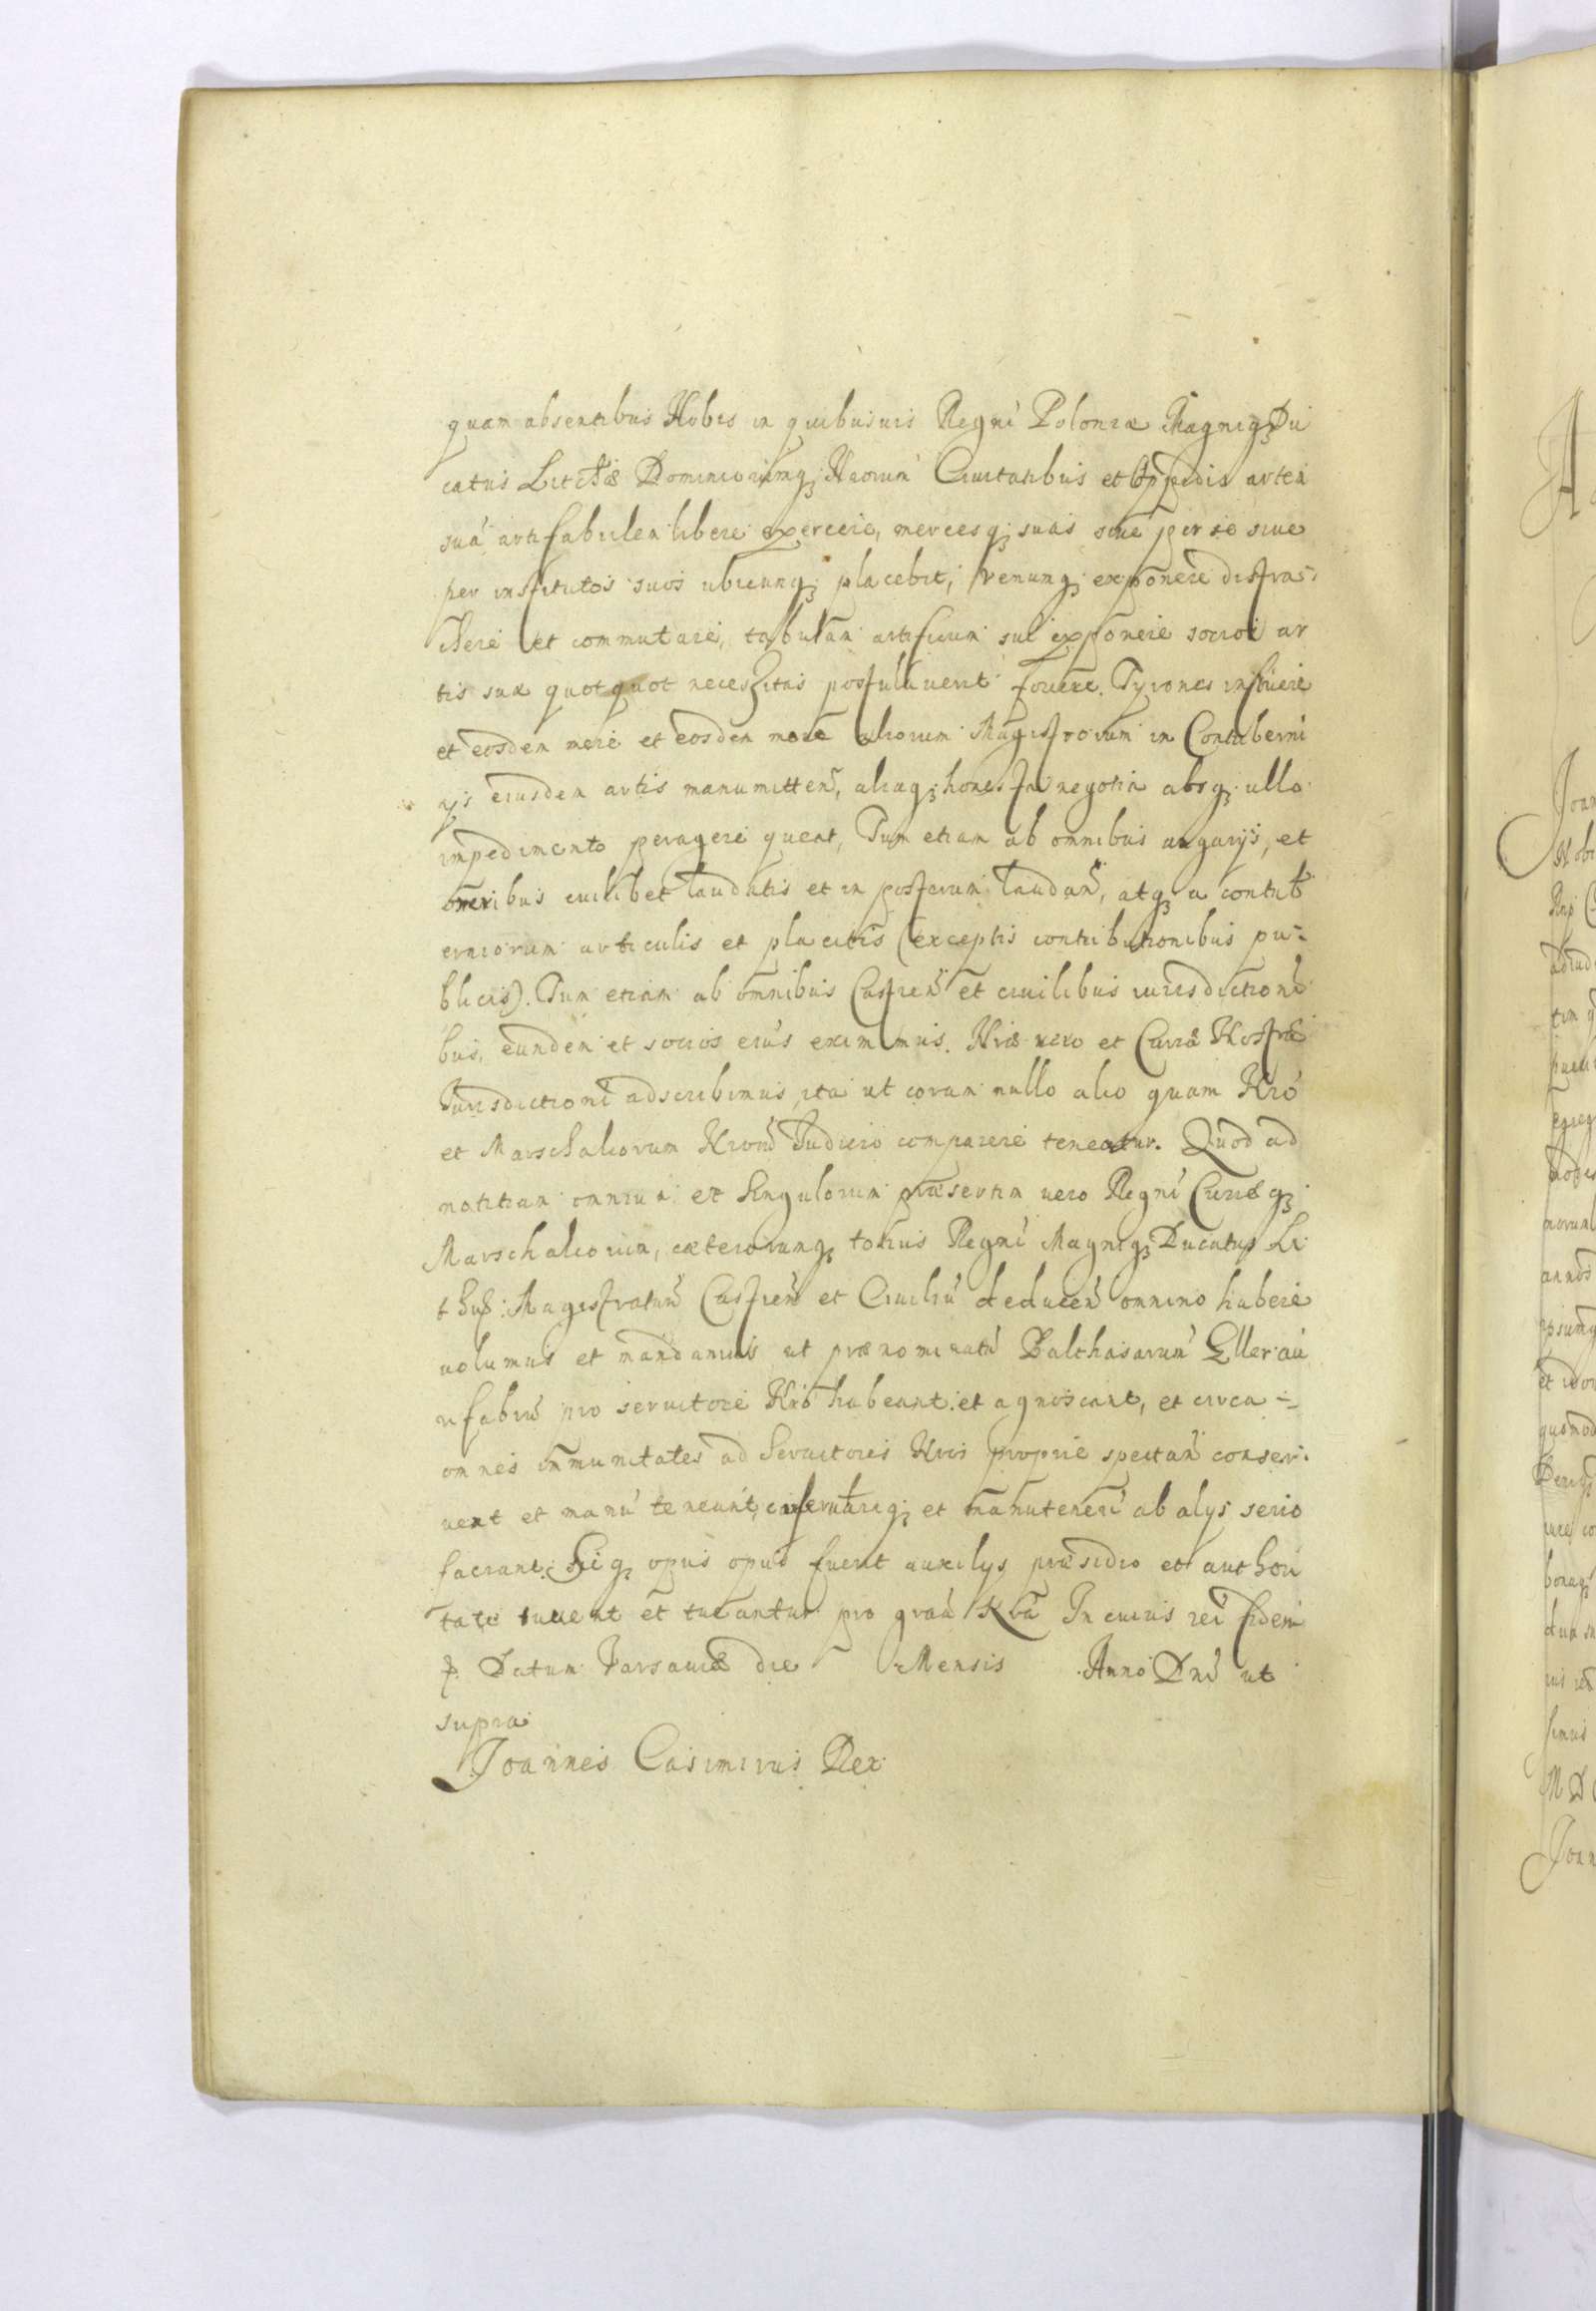 quam absentibus Nobis in quibusuis Regni Poloniæ Magniq; Du
catus Litt̃hæ Dominiorumq; Nrorum Ciuitatibus et Oppidis artem
suá aurifabrilem libere exercere, mercesq; suas siue per se siue
per institutos suos ubicunq; placebit, venunq; exponere distra-
here et commutare, tabulam artificium sui exponere socios ar
tis suæ quotquot necessitas postulauerit fouere. Tyrones instruere
et eosdem more aliorum Magistrorum in Contuberni
njs eiusdem artis manumittere, aliaq; honesta negotia absq; ullo
impedimento peragere queat, Tum etiam ab omnibus angarijs, et
oneribus ciuilibet laudatis et in posterum laudan̄, atq; a contub
erniorum articulis et placitis (exceptis contributionibus pu-
blicis). Tum etiam ab omnibus Castren̄ et ciuilibus iurisdictioni
bus, eundem et socios eius eximimus. Nræ vero et Curiæ Nostræ
Iurisdictioni adscribimus ita ut coram nullo alio quam Nró
et Marschalcorum Nrorū Iudicio comparere teneatur. Quod ad
notitiam omnium et singulorum præsertim vero Regni Curiæq;
Marschalcorum, cæterorumq; totius Regni Magniq; Ducatus Li
thuæ: Magistratuū Castren̄ et Ciuiliū deducen̄ omnino habere
uolumus et mandamus ut prænominatū Balthasarum Eller au
rifabrū pro seruitore Nró habeant et agnoscant, et circa -
omnes immunitates ad Seruitores Nros proprie spectan̄ conser-
uent et manu teneant, conseruariq; et manuteneri ab alys serio
faciant. Siq; opus opus fuerit auxilys præsidio et authori
tate iuuent et tueantur pro grãa Nra In cuius rei fidem
p. Datum Varsauiæ die Mensis Anno Dni ut
supra
Joannes Casimirus Rex